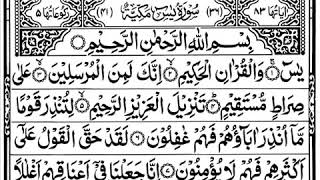 اٰیاتها ٨٣ (٣٦) سُوْرَةُ یٰسٓ مَكِّیَّةٌ (٤١) رکوعاتها ٥
بِسْمِ اللّٰهِ الرَّحْمٰنِ الرَّحِیْمِ
یٰسٓ ۝١ وَالْقُرْاٰنِ الْحَكِیْمِ ۝٢ اِنَّكَ لَمِنَ الْمُرْسَلِیْنَ ۝٣ عَلٰی
صِرَاطٍ مُّسْتَقِیْمٍ ۝٤ تَنْزِیْلَ الْعَزِیْزِ الرَّحِیْمِ ۝٥ لِتُنْذِرَ قَوْمًا
مَّاۤ اُنْذِرَ اٰبَآؤُهُمْ فَهُمْ غٰفِلُوْنَ ۝٦ لَقَدْ حَقَّ الْقَوْلُ عَلٰۤی
اَكْثَرِهِمْ فَهُمْ لَا یُؤْمِنُوْنَ ۝٧ اِنَّا جَعَلْنَا فِیْۤ اَعْنَاقِهِمْ اَغْلٰلًا